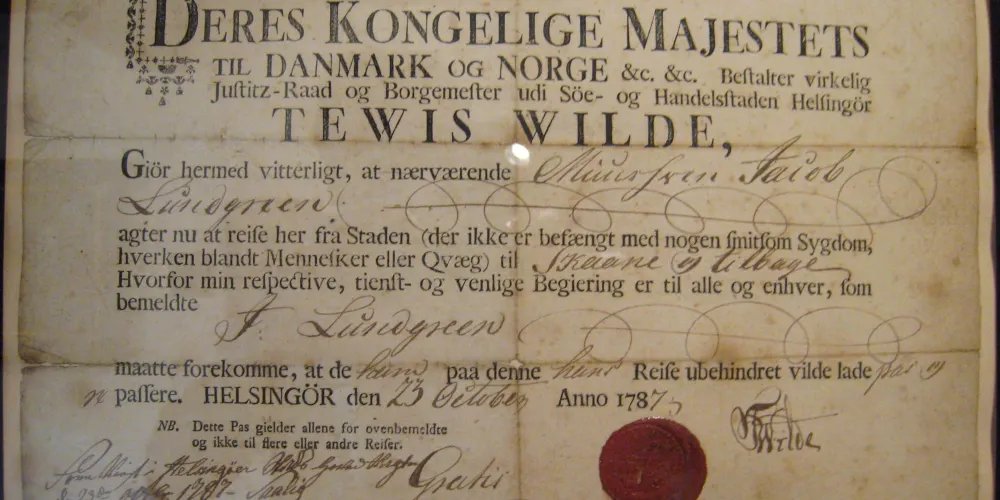 DERES KONGELIGE MAJESTETS
TIL DANMARK OG NORGE &c. &c. Beſtalter virkelig
Juſtitz-Raad og Borgemeſter udi Söe- og Handelsſtaden Helſingör
TEWIS WILDE,
Giör hermed vitterligt, at nærværende Muurſven Jacob
Lundgreen
agter nu at reiſe her fra Staden (der ikke er befængt med nogen ſmitſom Sygdom,
hverken blandt Menneſker eller Qvæg) til Skaane og tilbage
Hvorfor min reſpective, tienſt- og venlige Begiering er til alle og enhver, ſom
bemeldte
J. Lundgreen
maatte forekomme, at de ham paa denne hans Reiſe ubehindret vilde lade pas og
paſſere. HELSINGÖR den 23 October Anno 1787
TWilde
NB. Dette Pas gielder allene for ovenbemeldte
og ikke til flere eller andre Reiſer.
Helsingöer
1787
Gratis